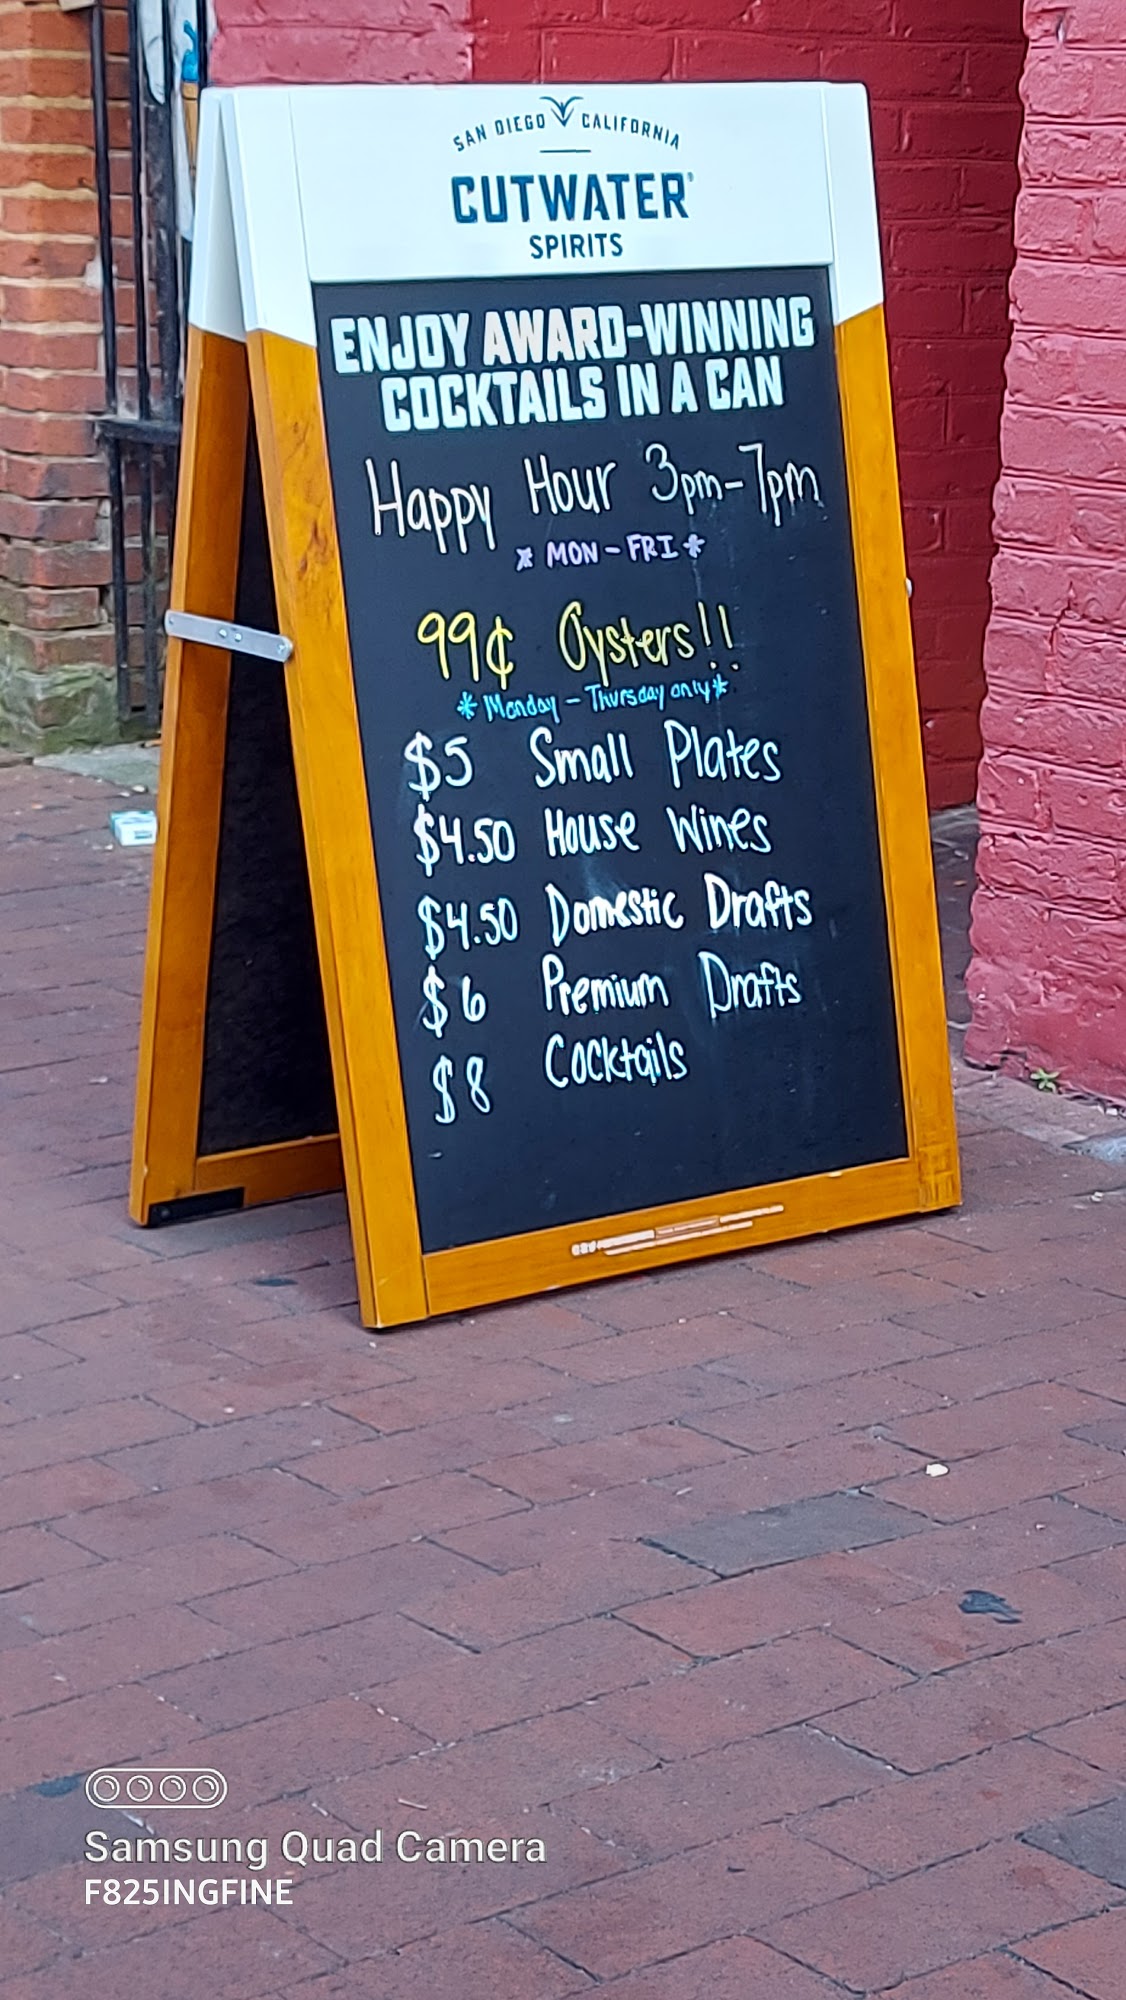 SAN DIEGO CALIFORNIA
CUTWATER®
SPIRITS
ENJOY AWARD-WINNING
COCKTAILS IN A CAN
Happy Hour 3pm-7pm
* MON - FRI *
99¢ Oysters!!
* Monday - Thursday only *
$5 Small Plates
$4.50 House Wines
$4.50 Domestic Drafts
$6 Premium Drafts
$8 Cocktails
Samsung Quad Camera
F825INGFINE